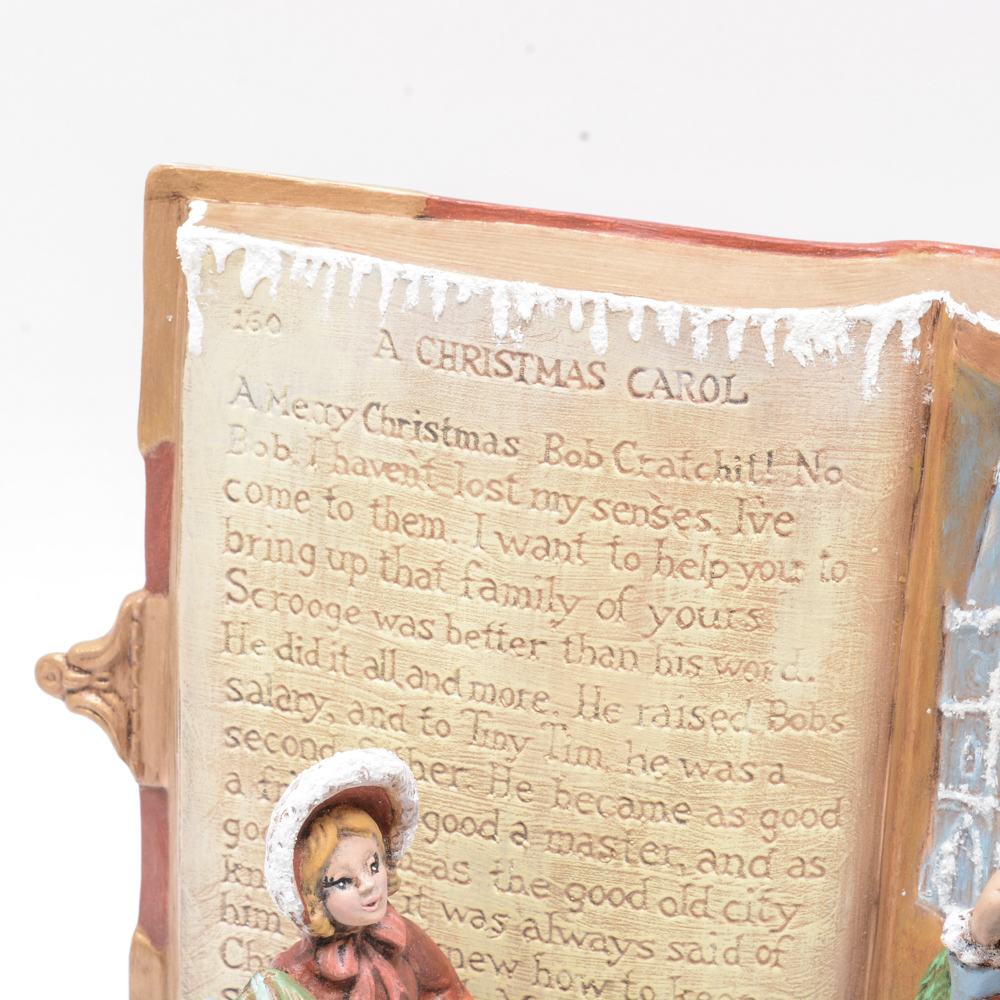 160
A CHRISTMAS CAROL
A Merry Christmas Bob Cratchit! No
Bob. I haven't lost my senses. I've
come to them. I want to help you to
bring up that family of yours
Scrooge was better than his word.
He did it all and more. He raised Bobs
salary, and to Tiny Tim, he was a
second her. He became as good
a good a master, and as
as the good old city
him it was always said of
new how to keep